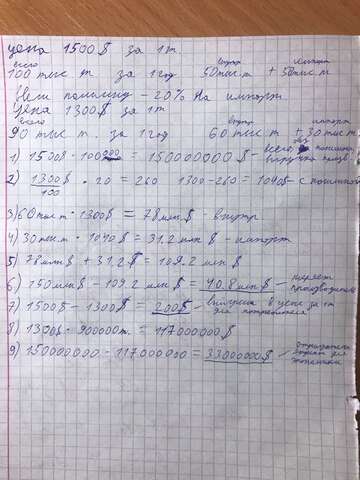 цена 1500$ за 1т
всего внутр импорт
100 тыс т за 1 год 50 тыс. т + 50 тыс. т
Ввели пошлину – 20% на импорт
Цена 1300$ за 1т
всего внутр импорт
90 тыс т. за 1 год 60 тыс т + 30 тыс т
1) 1500$ · 100000 = 150000000$ - всего
2) 1300$/100 · 20 = 260 1300-260=1040$ с пошлиной
3) 60 тыс т · 1300$ = 78 млн $ - внутр
4) 30 тыс т · 1040$ = 31.2 млн $ - импорт
5) 78 млн $ + 31.2$ = 109.2 млн $
6) 150 млн $ - 109.2 млн $ = 40.8 млн $ - теряет производитель
7) 1500$ - 1300$ = 200$ - в цене за 1т для потребителя
8) 1300$ · 900000т. = 117000000$
9) 150000000 - 117000000 = 33000000$ - для экономики